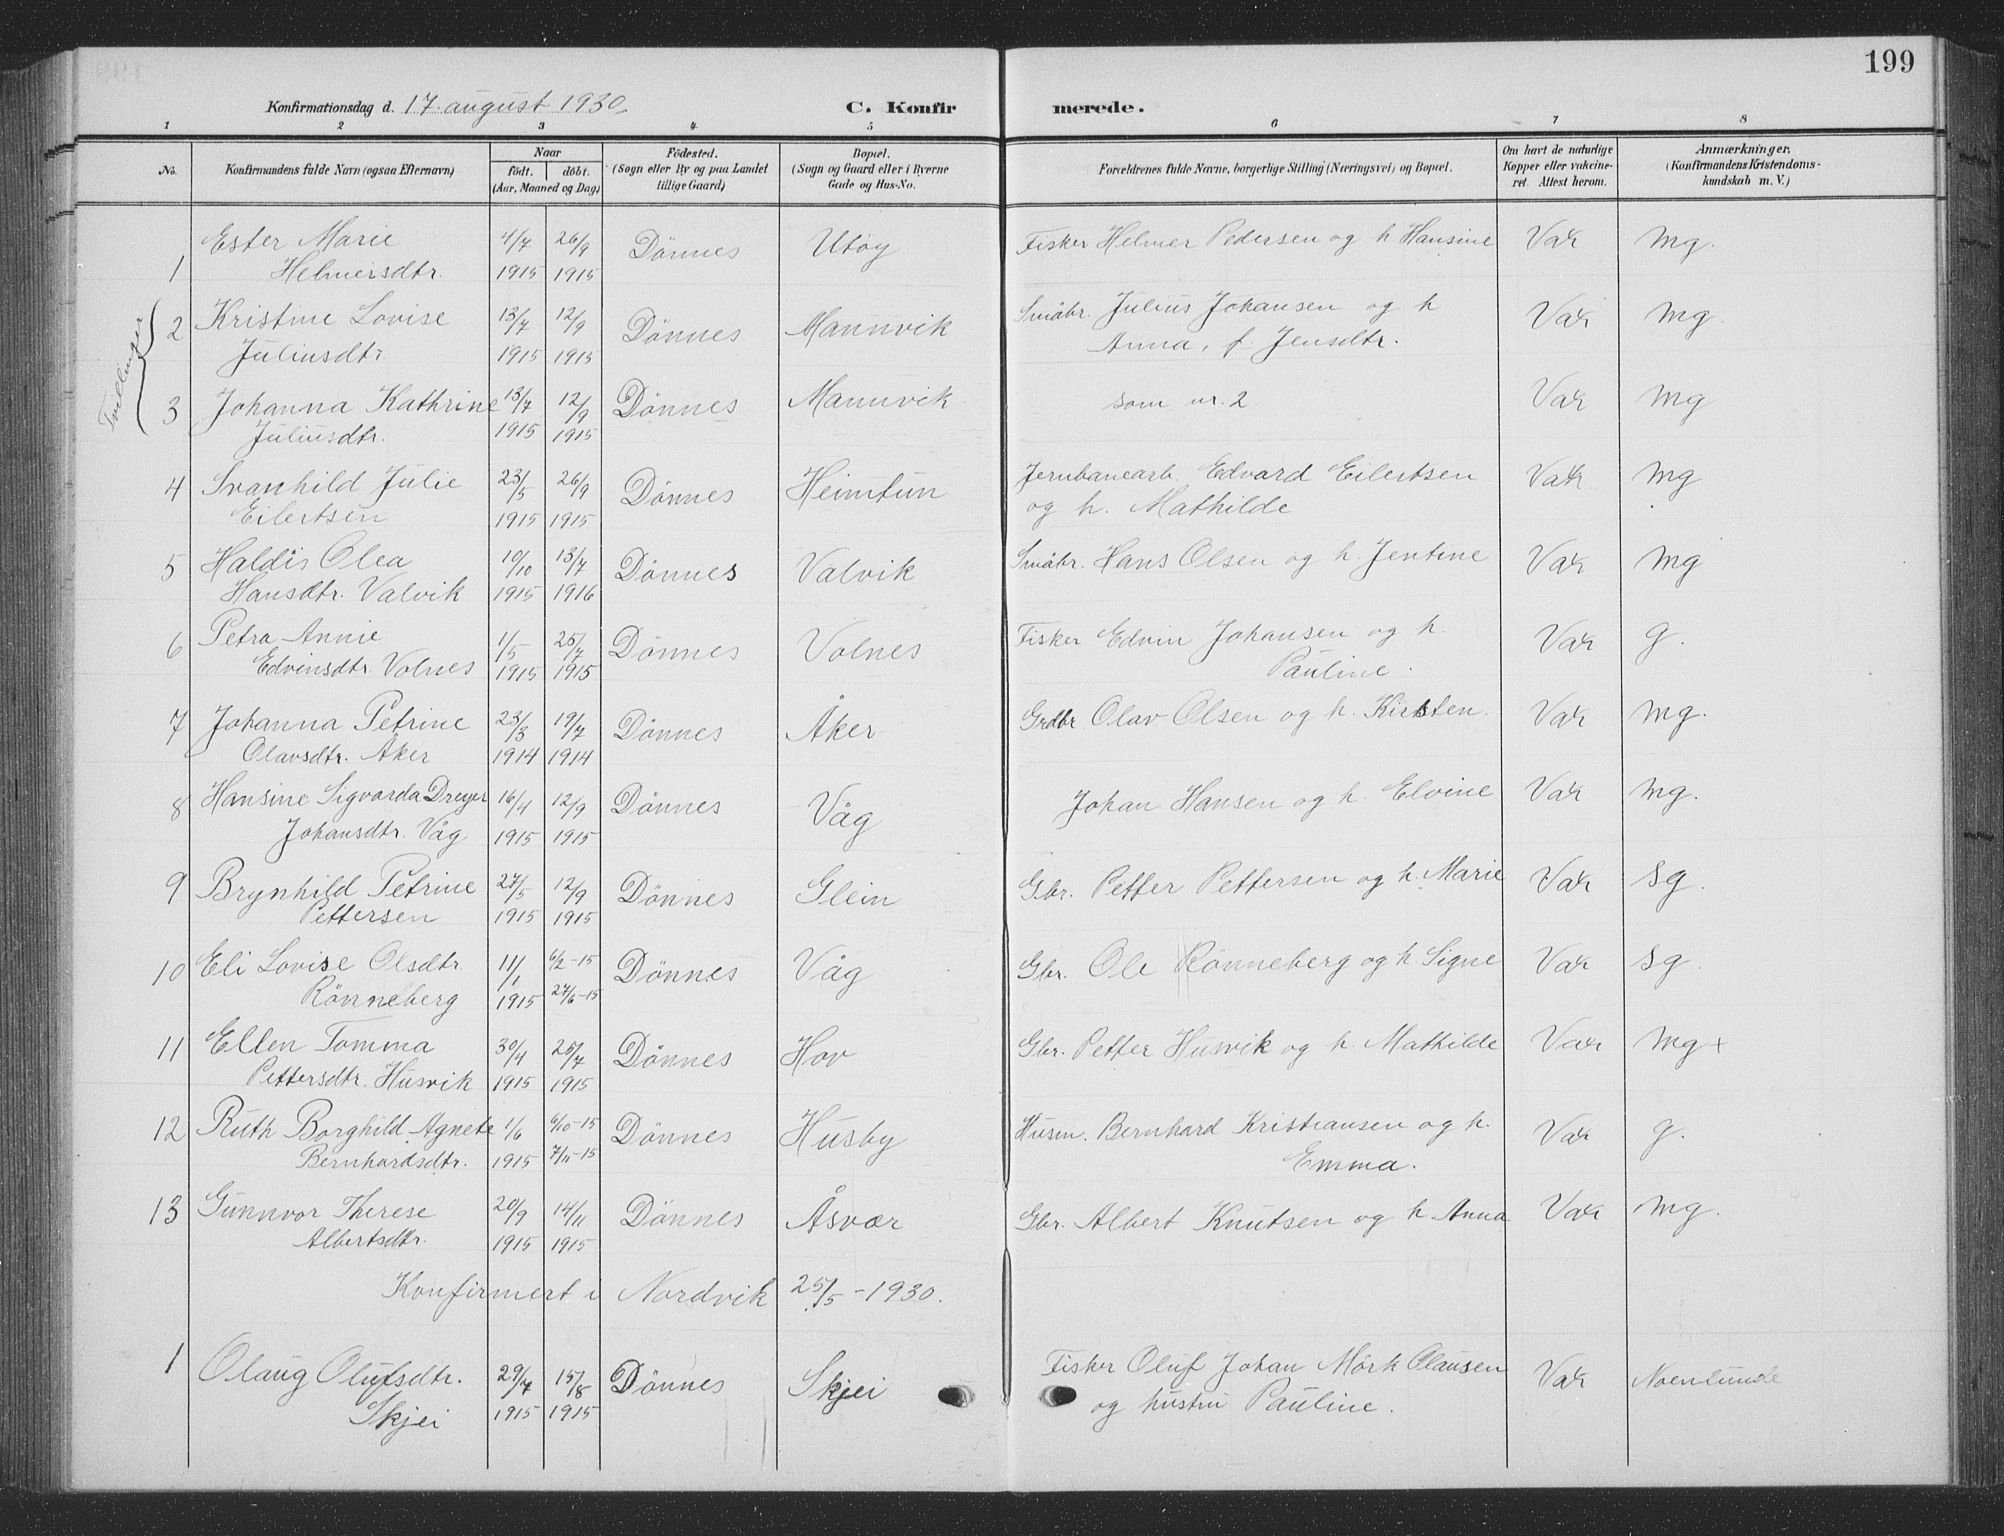 199
Konfirmationsdag d. 17. august 1930. C. Konfirmerede.
1 2 3 4 5 6 7 8
No. Konfirmandens fulde Navn (ogsaa Efternavn) Naar födt. döbt. (Aar, Maaned og Dag) Födested. (Sogn eller By og paa Landet tillige Gaard) Bopæl. (Sogn og Gaard eller i Byerne Gade og Hus-No. Forældrenes fulde Navne, borgerlige Stilling (Næringsvei) og Bopæl. Om havt de naturlige Kopper eller vakcineret. Attest herom. Anmærkninger. (Konfirmandens Kristendomskundskab m. V.)
1 Ester Marie 4/7 26/9 Dönnes Utöy Fisker Helmer Pedersen og h Hansine Vax mg.
Helmersdtr. 1915 1915
Tvillinger
2 Kristine Lovise 13/7 12/9 Dönnes Mannvik Småbr. Julius Johansen og h Vax mg.
Juliusdtr. 1915 1915 Anna, f. Jensdtr.
3 Johanna Kathrine 13/7 12/9 Dönnes Mannvik som nr. 2 Vax mg
Juliusdtr. 1915 1915
4 Svanhild Julie 23/5 26/9 Dönnes Heimtun Jernbanearb. Edvard Eilertsen Vax mg
Eilertsen 1915 1915 og h. Mathilde
5 Haldis Olea 10/10 13/7 Dönnes Valvik Småbr. Hans Olsen og h. Jentine Vax mg
Hansdtr. Valvik 1915 1916
6 Petra Annie 1/5 25/7 Dönnes Volnes Fisker Edvin Johansen og h. Vax g.
Edvinsdtr Volnes 1915 1915 Pauline.
7 Johanna Petrine 23/3 19/7 Dönnes Åker Grdbr. Olav Olsen og h. Kirsten. Vax mg.
Olavsdtr. Åker 1914 1914
8 Hansine Sigvarda Dreyer 16/4 12/9 Dönnes Våg Johan Hansen og h. Elvine Vax mg.
Johansdtr. Våg 1915 1915
9 Brynhild Petrine 27/5 12/9 Dönnes Glein Gbr. Petter Pettersen og h. Marie Vax sg.
Pettersen 1915 1915
10 Eli Lovise Olsdtr. 11/1 6/2-15 Dönnes Våg Gbr. Ole Rönneberg og h Signe Vax sg.
Rönneberg 1915 27/6-15
11 Ellen Tomma 30/4 25/7 Dönnes Hov Gbr. Petter Husvik og h. Mathilde Vax mg+
Pettersdtr. Husvik 1915 1915
12 Ruth Borghild Agnete 1/6 6/10-15 Dönnes Husby Husm. Bernhard Kristiansen og h. Vax g.
Bernhardsdtr. 1915 7/11-15 Emma.
13 Gunnvor Therese 20/9 14/11 Dönnes Åsvær Gbr. Albert Knutsen og h. Anna Vax mg.
Albertsdtr. 1915 1915
Konfirmert i Nordvik 25/5-1930.
1 Olaug Olufsdtr. 29/4 15/8 Dönnes Skjei Fisker Oluf Johan Mörk Olausen Vax Noenlunde
Skjei 1915 1915 og hustru Pauline.